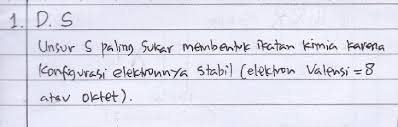 1. D. S
Unsur S paling sukar membentuk ikatan kimia karena
konfigurasi elektronnya stabil (elektron valensi = 8
atau oktet).